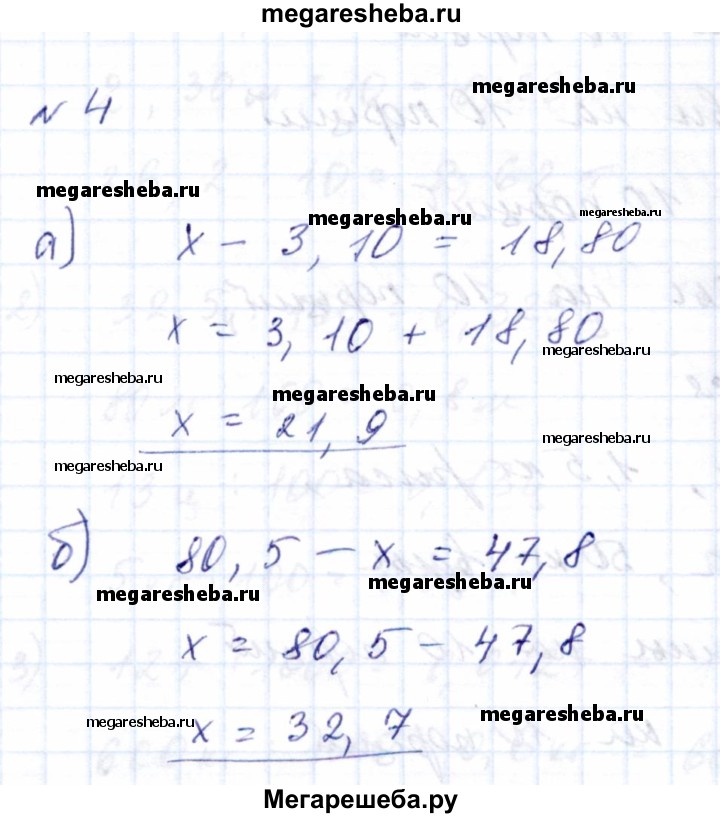 megaresheba.ru
megaresheba.ru
№ 4
megaresheba.ru
megaresheba.ru
megaresheba.ru
а) x - 3,10 = 18,80
x = 3,10 + 18,80
megaresheba.ru
megaresheba.ru
megaresheba.ru
x = 21,9
megaresheba.ru
megaresheba.ru
б) 80,5 - x = 47,8
megaresheba.ru
megaresheba.ru
x = 80,5 - 47,8
megaresheba.ru
megaresheba.ru
x = 32,7
Мегарешеба.ру